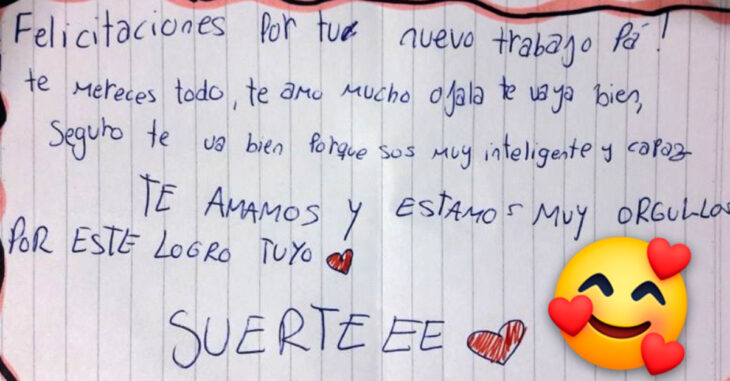 Felicitaciones Por tu nuevo trabajo Pá!
te mereces todo, te amo mucho ojala te vaya bien,
Seguro te va bien Porque sos muy inteligente y capaz
TE AMAMOS Y ESTAMOS MUY ORGULLOS
POR ESTE LOGRO TUYO
SUERTEEE